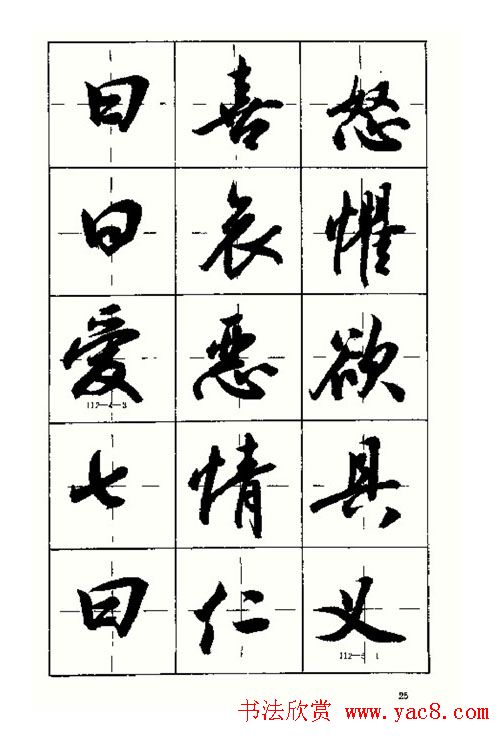 曰喜怒
曰哀惧
爱恶欲
112—4—3
七情具
曰仁义
25
书法欣赏 www.yac8.com